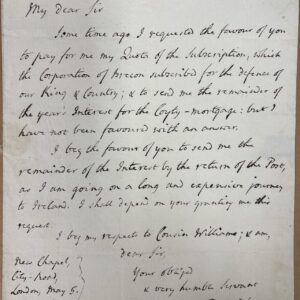 My Dear Sir
Some time ago I requested the favour of you
to pay for me my Quota of the Subscription, which
the Corporation of Brecon subscribed for the defence of
our King & Country; & to send me the remainder of
the year's Interest for the Coyty-mortgage: but I
have not been favoured with an answer.
I beg the favour of you to send me the
remainder of the Interest by the return of the Post,
as I am going on a long and expensive journey
to Ireland. I shall depend on your granting me this
request.
I beg my respects to Cousin Williams; & am,
Dear Sir,
New Chapel,
City-Road,
London, May 5.
Your oblig'd
& very humble Servant